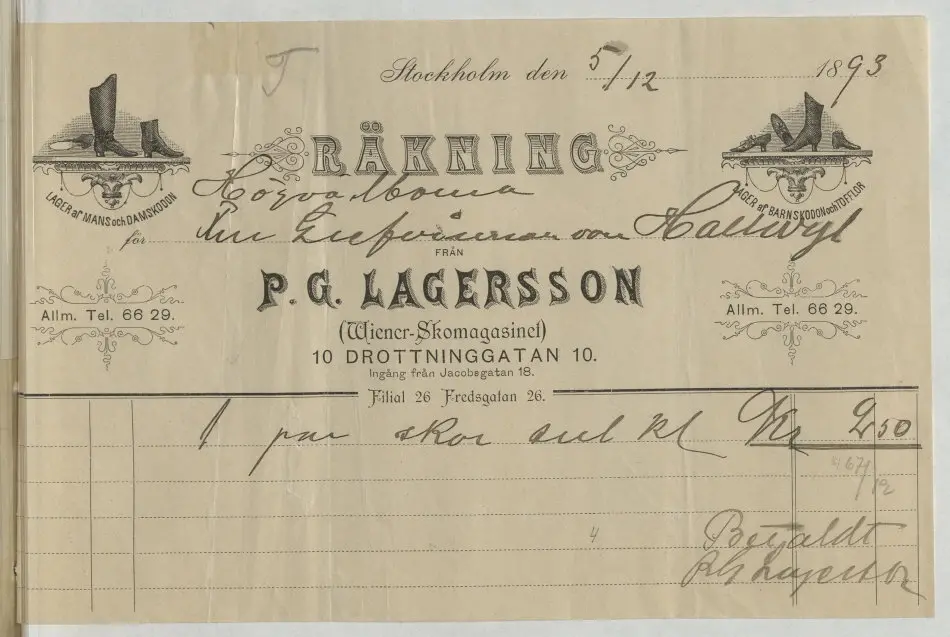 Stockholm den 5/12 1893
RÄKNING
LAGER af MANS och DAMSKODON
LAGER af BARNSKODON och TOFFLOR
Högvälborna
för Fru Grefvinnan von Hallwyl
FRÅN
P. G. LAGERSSON
Allm. Tel. 66 29.
Allm. Tel. 66 29.
(Wiener-Skomagasinet)
10 DROTTNINGGATAN 10.
Ingång från Jacobsgatan 18.
Filial 26 Fredsgatan 26.
1 par skor sul kl Kr 2 50
4
Betaldt
P G Lagersson